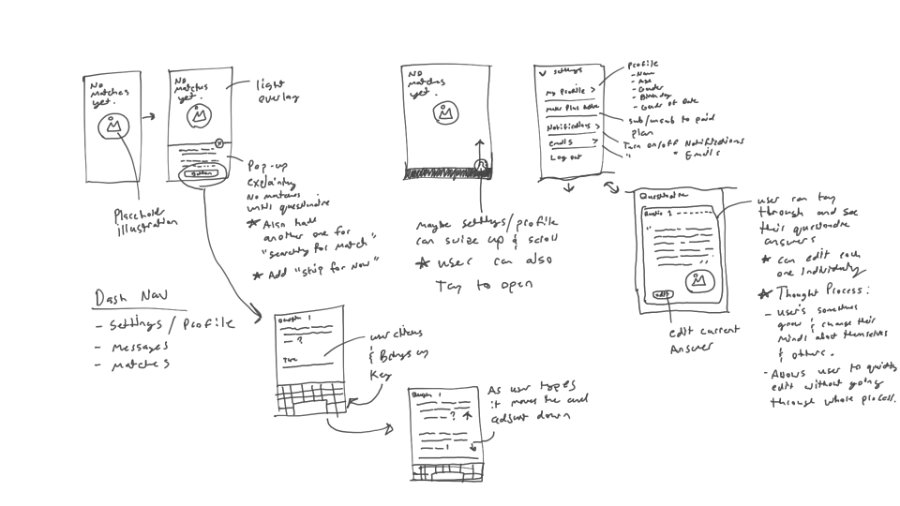 No
matches
yet.
Placeholder
Illustration
No
Matches
yet.
Button
light
overlay
Pop-up
Explaining
No matches
until questionnaire
★ Also have
another one for
"searching for match"
★ Add "skip for now"
Dash Nav
- Settings / Profile
- Messages
- Matches
Question 1
?
Type
user clicks
& Brings up
Key
Question 1
?
As user types
it moves the
adjust down
No
matches
yet.
Maybe settings/profile
can swipe up & scroll
★ user can also
Tap to open
Settings
My Profile >
Notifications >
Emails >
Log out
Profile
- Name
- Age
- Gender
- Birthday
- Gender of Date
sub/unsub to paid
plan
Turn on/off Notifications
" " Emails
Questionnaire
Question 1
edit
edit current
Answer
user can tap
through and see
their questionnaire
answers
★ can edit each
one individually
★ Thought Process:
- user's sometimes
grow & change their
minds about themselves
& others.
- Allows user to quickly
edit without going
through whole process.